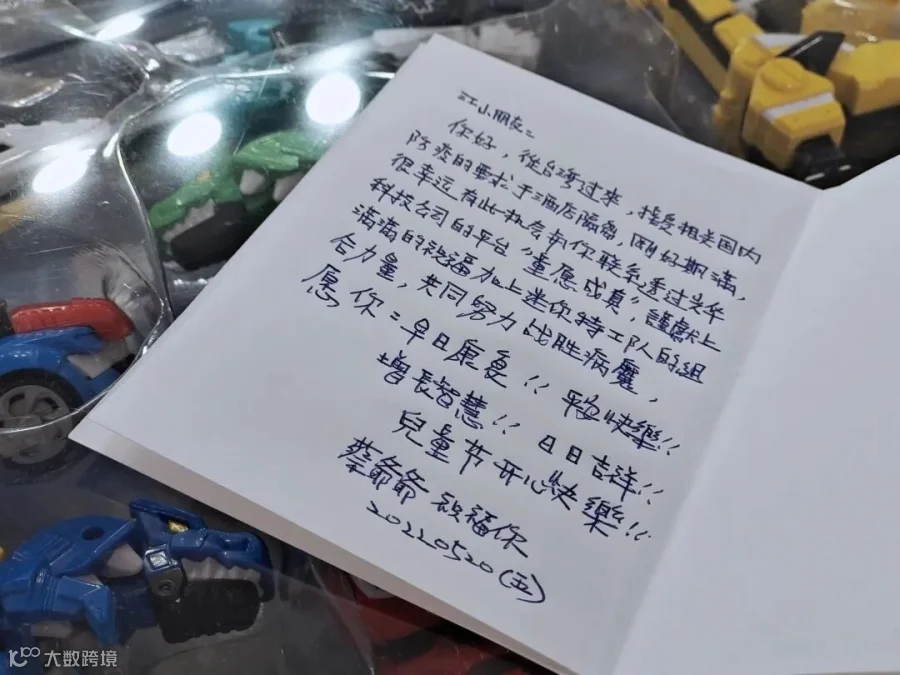 江小朋友:
你好,從台湾过来,接受相关国内
防疫的要求于酒店隔离,刚好期满,
很幸运有此机会与你联系透过光年
科技公司的平台“童愿成真”,謹獻上
满满的祝福加上迷你特工队的組
合力量,共同努力战胜病魔,
愿你:早日康复!! 快樂!!
增長智慧!! 日日吉祥!!
兒童节开心快樂!!
蔡爺爺 祝福你
20220520(五)
大数跨境